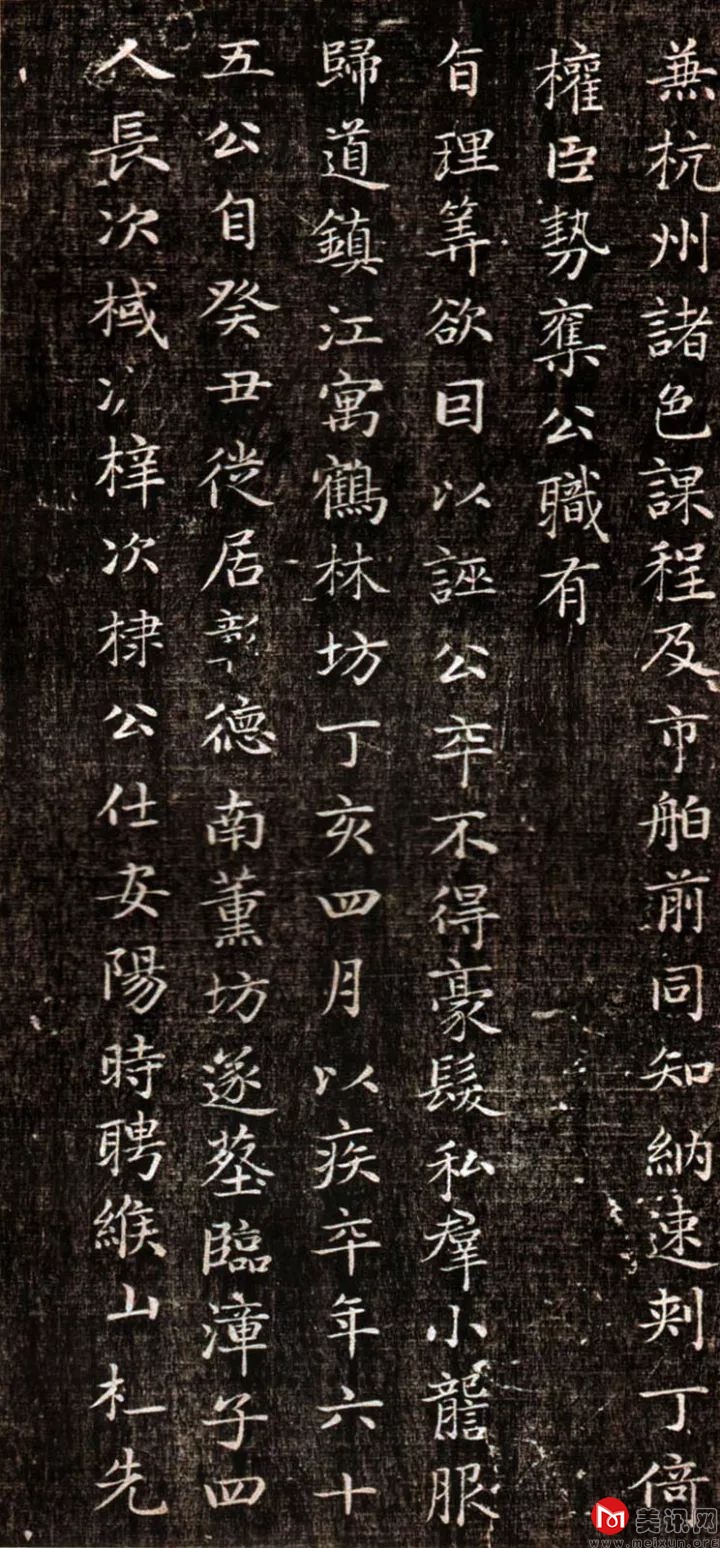 兼杭州諸色課程及市舶前同知納速剌丁倚
權臣勢奪公職有
旨理筭欲因以誣公卒不得豪髮私羣小讋服
歸道鎮江寓鶴林坊丁亥四月以疾卒年六十
五公自癸丑徙居彰德南薰坊遂塟臨漳子四
人長次棫次梓次棣公仕安陽時聘緱山杜先
美讯网
www.meixun.org